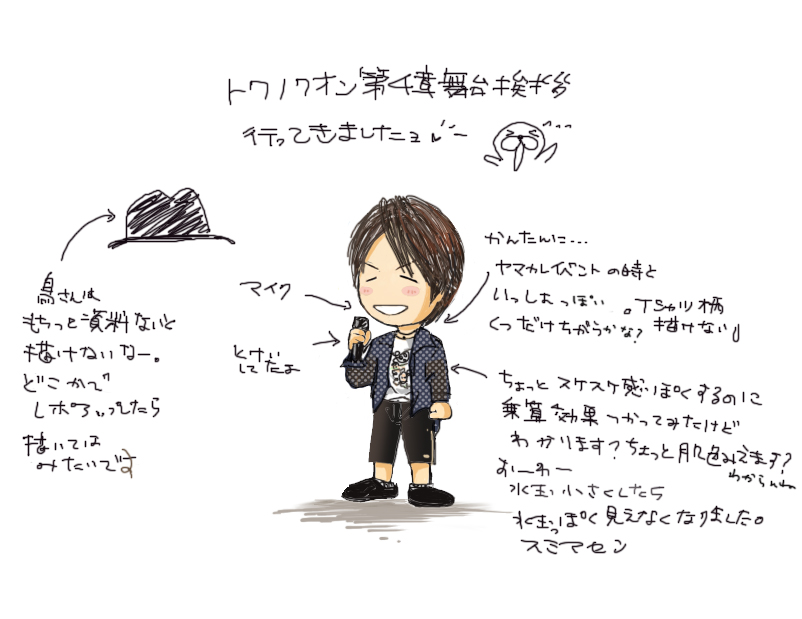 トワノクオン第4章舞台挨拶
行ってきましたョ〜
かんたんに…
ヤマカレイベントの時と
いっしょっぽい。Tシャツ柄
くつだけちがうかな? 描けない
マイク
とけい
してたよ
鳥さんは
もちっと資料ないと
描けないなー。
どこかで
レポアップしたら
描いては
みたいです
ちょっとスケスケ感ぽくするのに
乗算効果つかってみたけど
わかります?ちょっと肌色みえます?
わからんね
おーわー
水玉小さくしたら
水玉っぽく見えなくなりました。
スミマセン